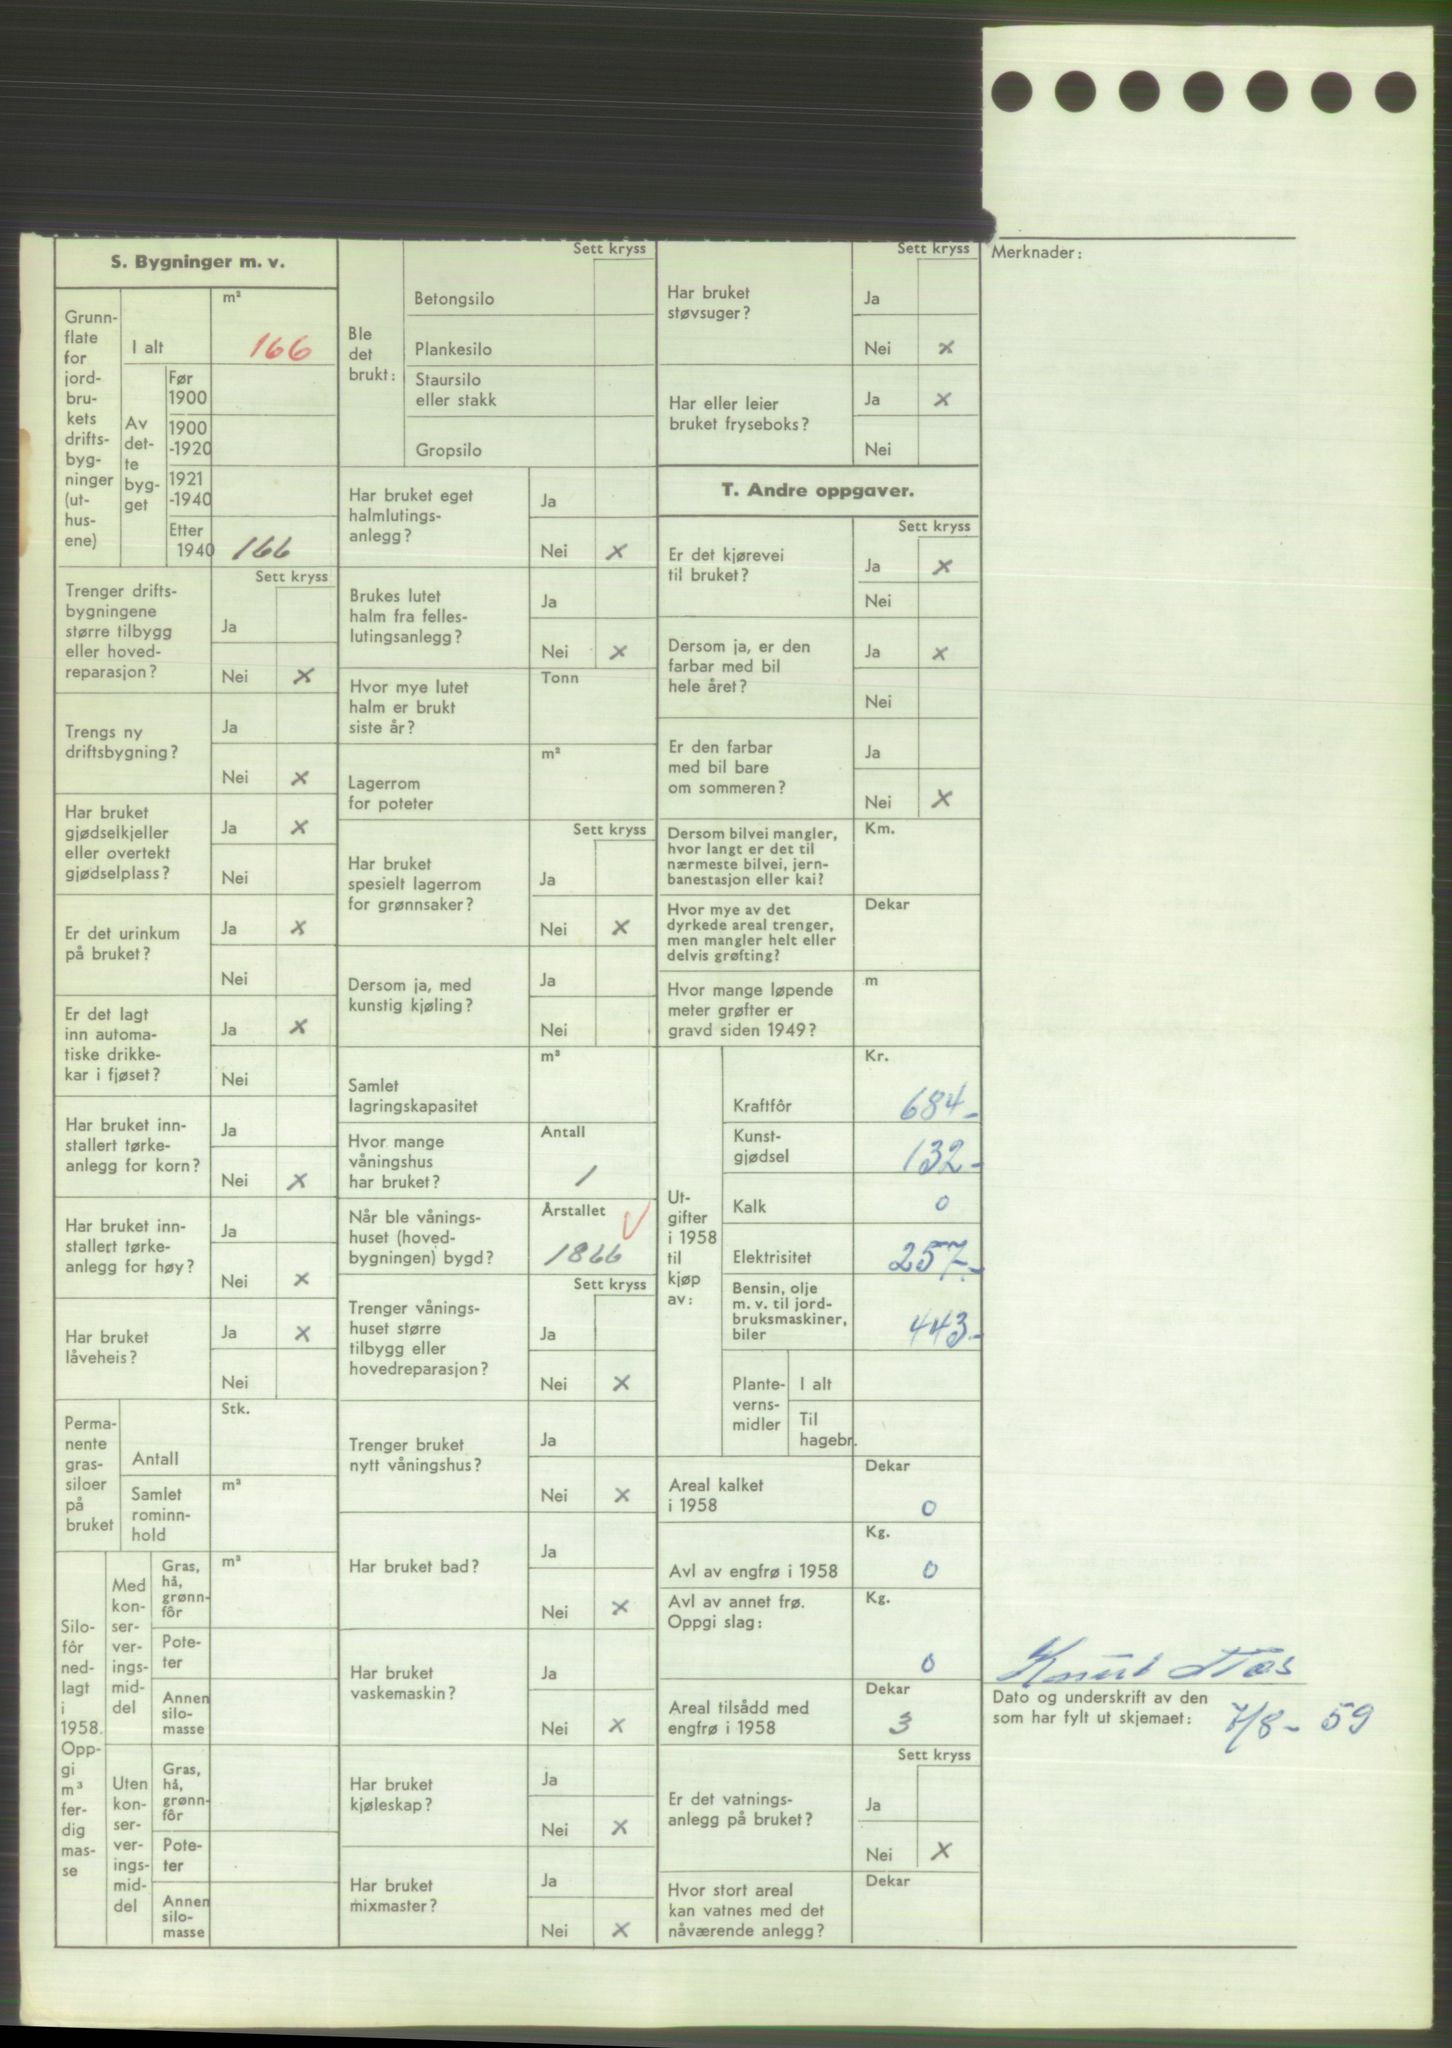 S. Bygninger m. v.
Grunn-
flate
for
jord-
bru-
kets
drifts-
byg-
ninger
(ut-
hus-
ene)
m²
I alt 166
Av
det-
te
byg-
get
Før
1900
1900
-1920
1921
-1940
Etter
1940 166
Sett kryss
Trenger drifts-
bygningene
større tilbygg
eller hoved-
reparasjon?
Ja
Nei x
Trengs ny
driftsbygning?
Ja
Nei x
Har bruket
gjødselkjeller
eller overtekt
gjødselplass?
Ja x
Nei
Er det urinkum
på bruket?
Ja x
Nei
Er det lagt
inn automa-
tiske drikke-
kar i fjøset?
Ja x
Nei
Har bruket inn-
stallert tørke-
anlegg for korn?
Ja
Nei x
Har bruket inn-
stallert tørke-
anlegg for høy?
Ja
Nei x
Har bruket
låveheis?
Ja x
Nei
Perma-
nente
gras-
siloer
på
bruket
Stk.
Antall
m³
Samlet
rominn-
hold
Silo-
fôr
ned-
lagt
i
1958.
Opp-
gi
m³
fer-
dig
mas-
se
Med
kon-
ser-
ver-
ings-
mid-
del
m³
Gras,
hå,
grønn-
fôr
Pote-
ter
Annen
silo-
masse
Uten
kon-
ser-
ver-
ings-
mid-
del
Gras,
hå,
grønn-
fôr
Pote-
ter
Annen
silo-
masse
Sett kryss
Ble
det
brukt:
Betongsilo
Plankesilo
Staursilo
eller stakk
Gropsilo
Har bruket eget
halmlutings-
anlegg?
Ja
Nei x
Brukes lutet
halm fra felles-
lutingsanlegg?
Ja
Nei x
Hvor mye lutet
halm er brukt
siste år?
Tonn
Lagerrom
for poteter
m²
Sett kryss
Har bruket
spesielt lagerrom
for grønnsaker?
Ja
Nei x
Dersom ja, med
kunstig kjøling?
Ja
Nei
Samlet
lagringskapasitet
m³
Hvor mange
våningshus
har bruket?
Antall
1
Når ble vånings-
huset (hoved-
bygningen) bygd?
Årstallet
1866
Sett kryss
Trenger vånings-
huset større
tilbygg eller
hovedreparasjon?
Ja
Nei x
Trenger bruket
nytt våningshus?
Ja
Nei x
Har bruket bad?
Ja
Nei x
Har bruket
vaskemaskin?
Ja
Nei x
Har bruket
kjøleskap?
Ja
Nei x
Har bruket
mixmaster?
Ja
Nei x
Sett kryss
Har bruket
støvsuger?
Ja
Nei x
Har eller leier
bruket fryseboks?
Ja x
Nei
T. Andre oppgaver.
Sett kryss
Er det kjørevei
til bruket?
Ja x
Nei
Dersom ja, er den
farbar med bil
hele året?
Ja x
Nei
Er den farbar
med bil bare
om sommeren?
Ja
Nei x
Dersom bilvei mangler,
hvor langt er det til
nærmeste bilvei, jern-
banestasjon eller kai?
Km.
Hvor mye av det
dyrkede areal trenger,
men mangler helt eller
delvis grøfting?
Dekar
Hvor mange løpende
meter grøfter er
gravd siden 1949?
m
Ut-
gifter
i 1958
til
kjøp
av:
Kr.
Kraftfôr 684-
Kunst-
gjødsel 132-
Kalk 0
Elektrisitet 257.-
Bensin, olje
m. v. til jord-
bruksmaskiner,
biler 443.-
Plante-
verns-
midler
I alt
Til
hagebr.
Areal kalket
i 1958
Dekar
0
Kg.
Avl av engfrø i 1958 0
Avl av annet frø.
Oppgi slag:
Kg.
0
Areal tilsådd med
engfrø i 1958
Dekar
3
Sett kryss
Er det vatnings-
anlegg på bruket?
Ja
Nei x
Hvor stort areal
kan vatnes med det
nåværende anlegg?
Dekar
Merknader:
Knut Næs
Dato og underskrift av den
som har fylt ut skjemaet: 7/8- 59